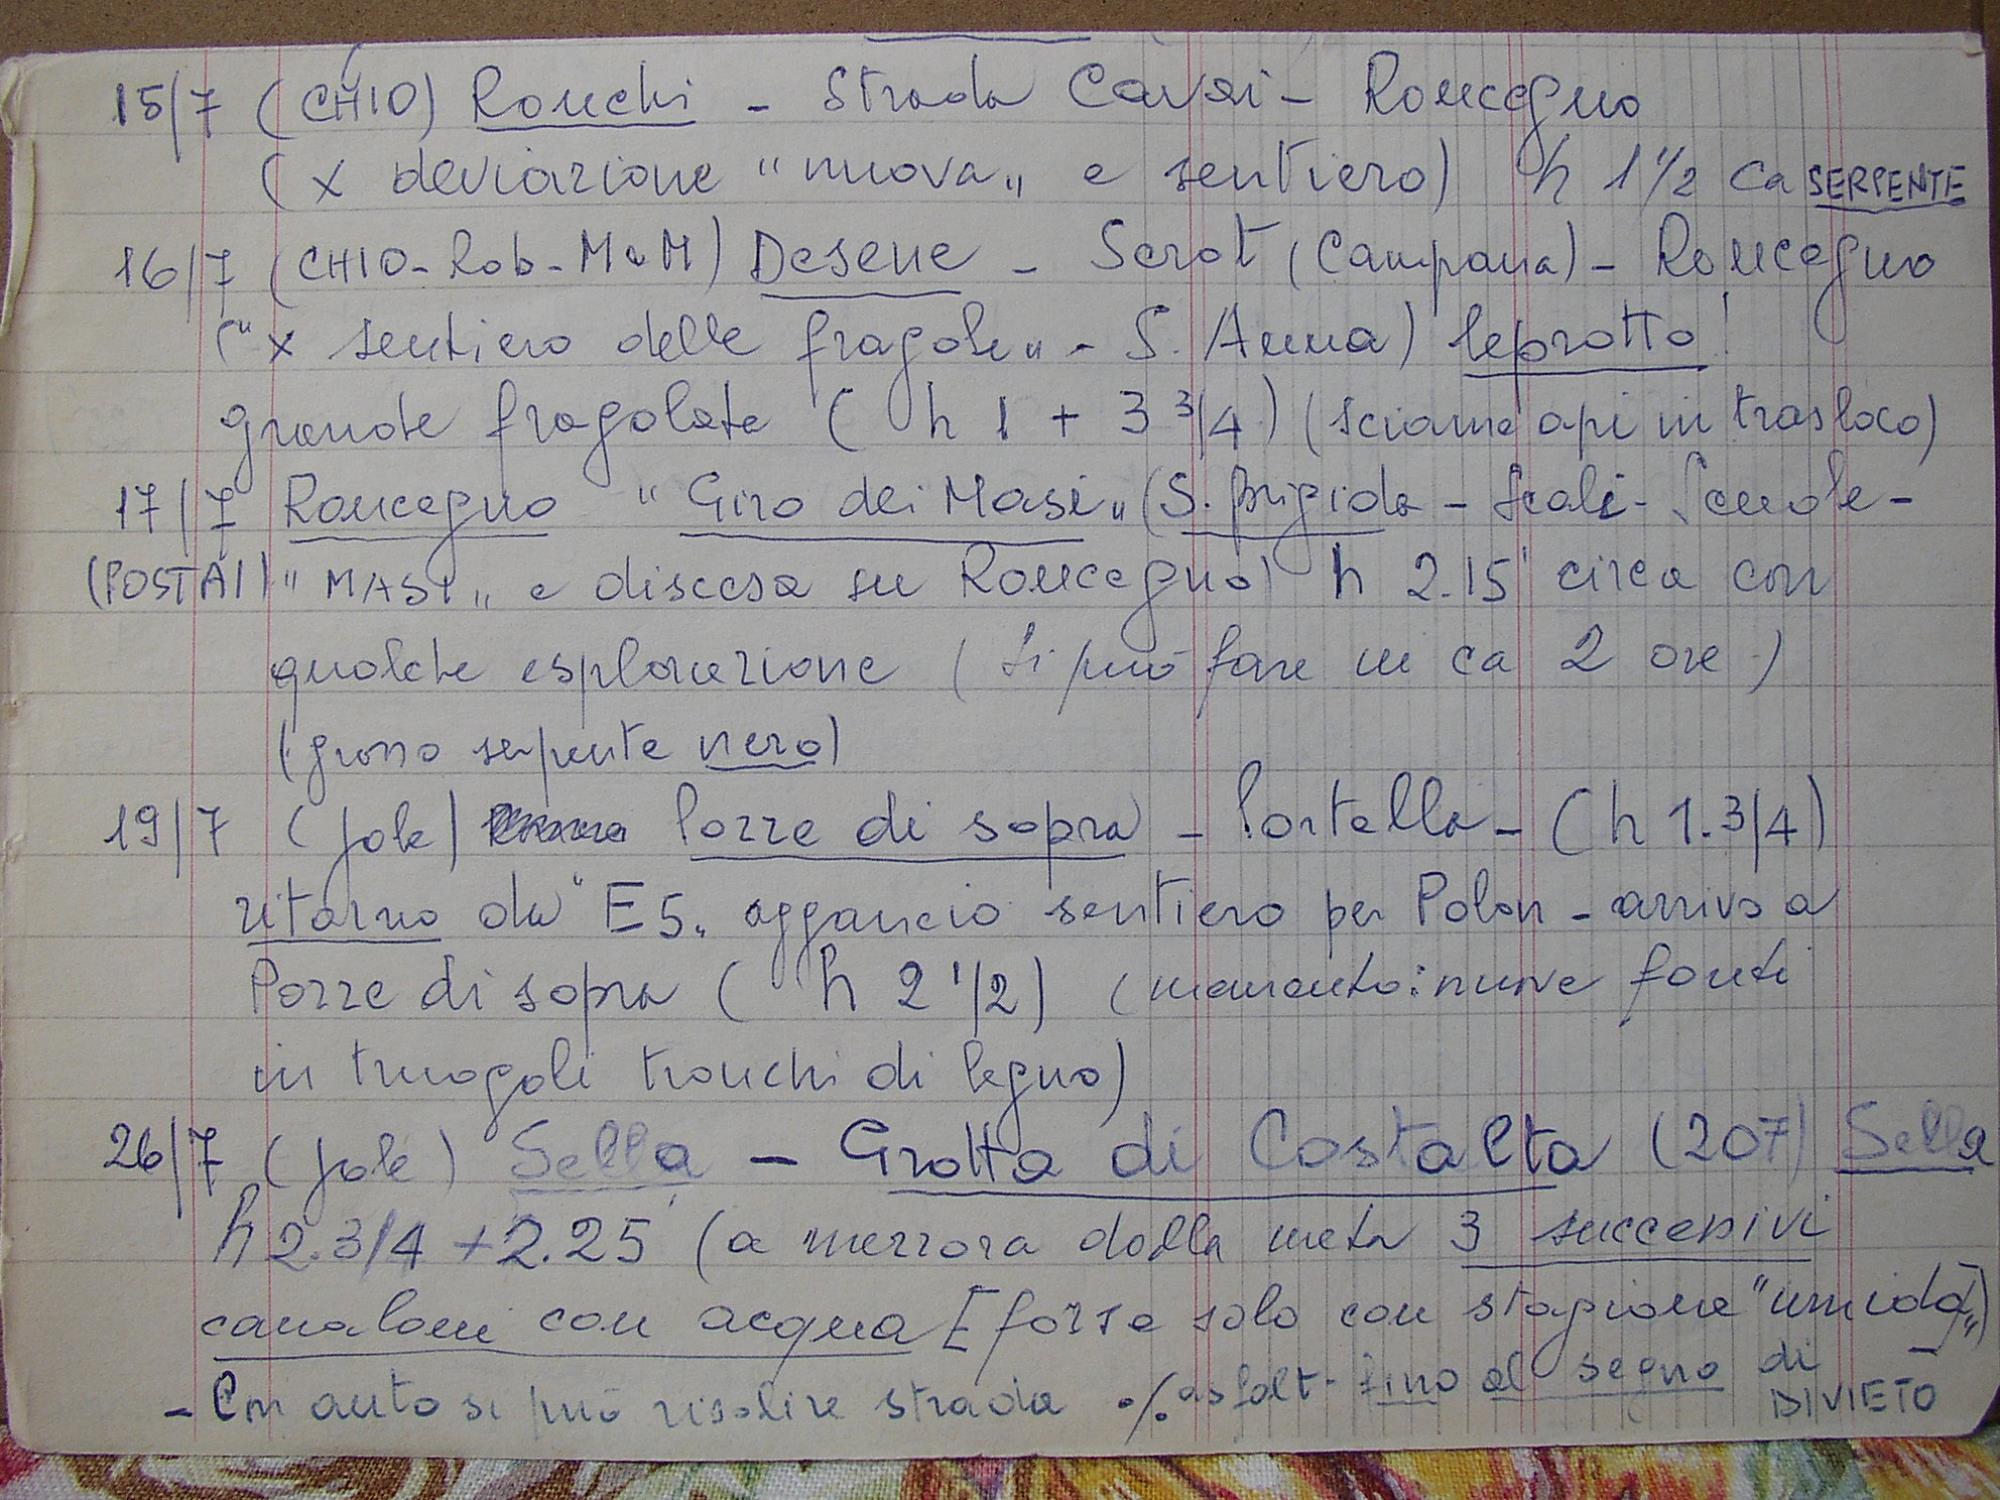 15/7 (CHIO) Ronchi - Strada Cavai - Roncegno
(x deviazione "nuova" e sentiero) h 1 1/2 ca SERPENTE
16/7 (CHIO-Rob-M e M) Desene - Serot (Campana) - Roncegno
("x sentiero delle fragole" - S. Anna) leprotto!
grande fragolate (h 1 + 3 3/4) (sciame api in trasloco)
17/7 Roncegno "Giro dei Masi" (S. Brigida - Scali - Scuole -
(POSTAI) "MASI" e discesa su Roncegno) h 2.15' circa con
qualche esplorazione (si può fare in ca 2 ore)
(grosso serpente nero)
19/7 (Jole) Pozze di sopra - Portella - (h 1.3/4)
ritorno da "E5" aggancio sentiero per Polon - arrivo a
Pozze di sopra (h 2 1/2) (nuove fonti
in truogoli tronchi di legno)
26/7 (Jole) Sella - Grotta di Costalta (207) Sella
h 2.3/4 + 2.25' (a mezzora dalla meta 3 successivi
canaloni con acqua [forse solo con stagione "umida"])
- Con auto si può risalire strada asfalt. fino al segno di
DIVIETO